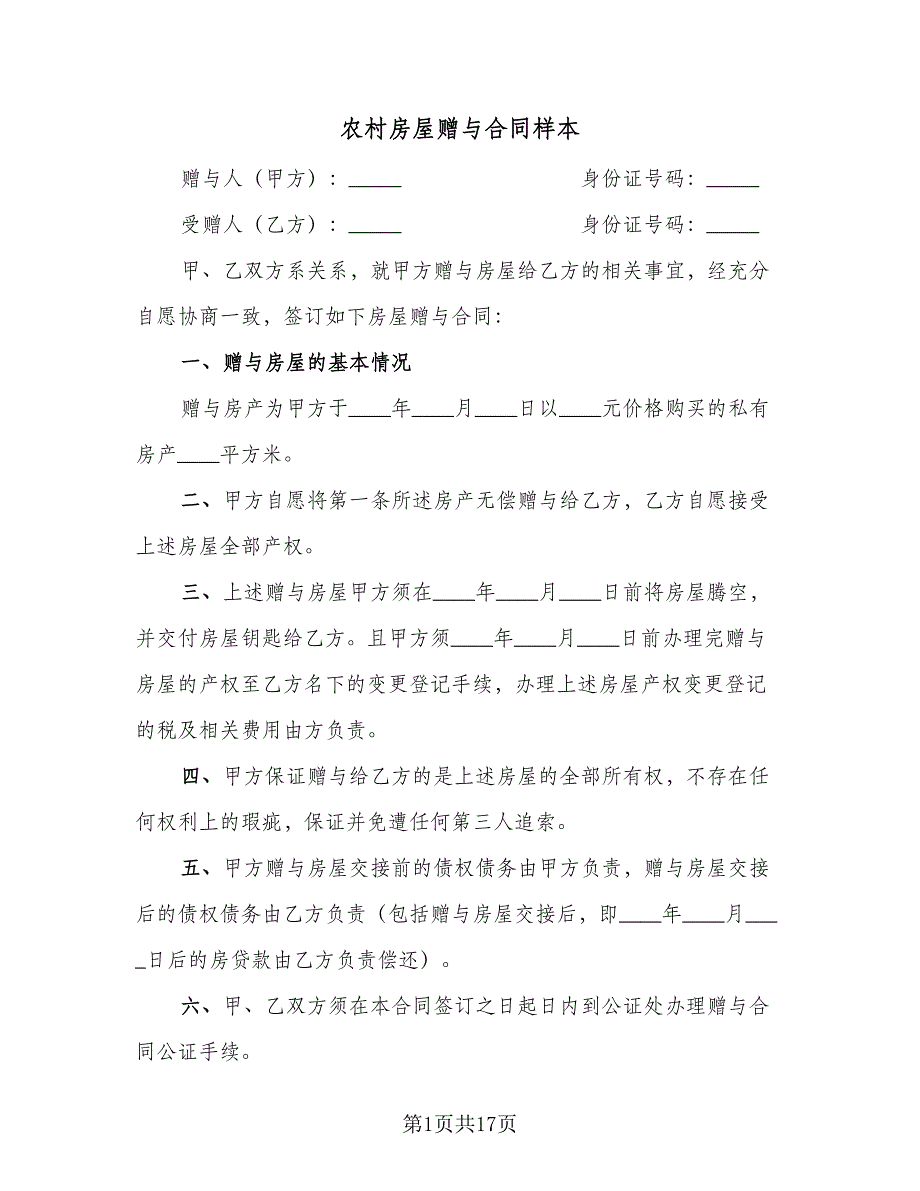 农村房屋赠与合同样本
赠与人（甲方）：_____ 身份证号码：_____
受赠人（乙方）：_____ 身份证号码：_____
甲、乙双方系关系，就甲方赠与房屋给乙方的相关事宜，经充分
自愿协商一致，签订如下房屋赠与合同：
一、赠与房屋的基本情况
赠与房产为甲方于____年____月____日以____元价格购买的私有
房产____平方米。
二、甲方自愿将第一条所述房产无偿赠与给乙方，乙方自愿接受
上述房屋全部产权。
三、上述赠与房屋甲方须在____年____月____日前将房屋腾空，
并交付房屋钥匙给乙方。且甲方须____年____月____日前办理完赠与
房屋的产权至乙方名下的变更登记手续，办理上述房屋产权变更登记
的税及相关费用由方负责。
四、甲方保证赠与给乙方的是上述房屋的全部所有权，不存在任
何权利上的瑕疵，保证并免遭任何第三人追索。
五、甲方赠与房屋交接前的债权债务由甲方负责，赠与房屋交接
后的债权债务由乙方负责（包括赠与房屋交接后，即____年____月___
_日后的房贷款由乙方负责偿还）。
六、甲、乙双方须在本合同签订之日起日内到公证处办理赠与合
同公证手续。
第1页共17页